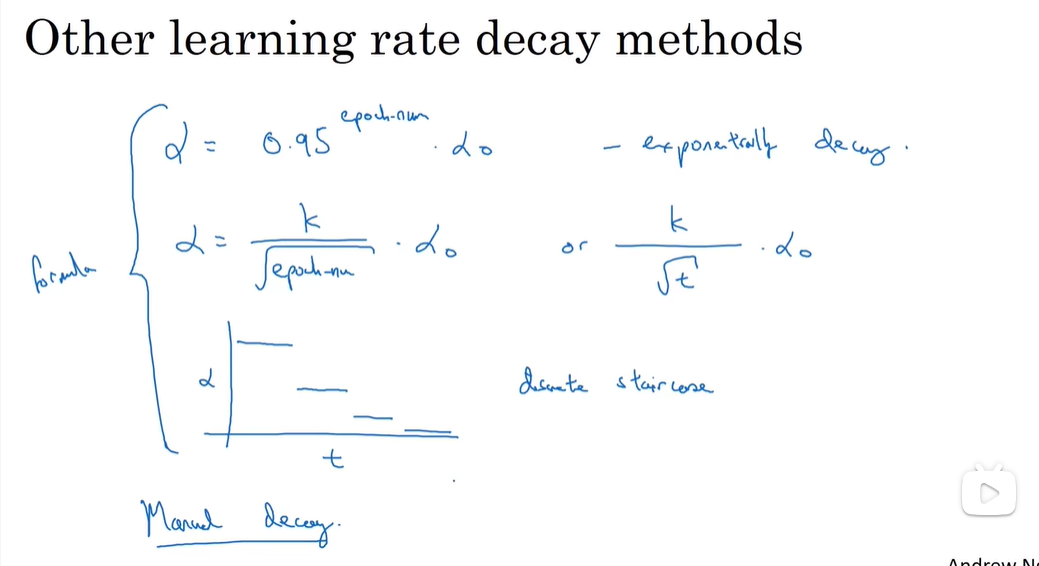 Other learning rate decay methods
α = 0.95^epoch-num · α₀ – exponentially decay.
formula
α = k/√epoch-nu · α₀ or k/√t · α₀
α
discrete staircase
t
Manual decay.
Andrew N